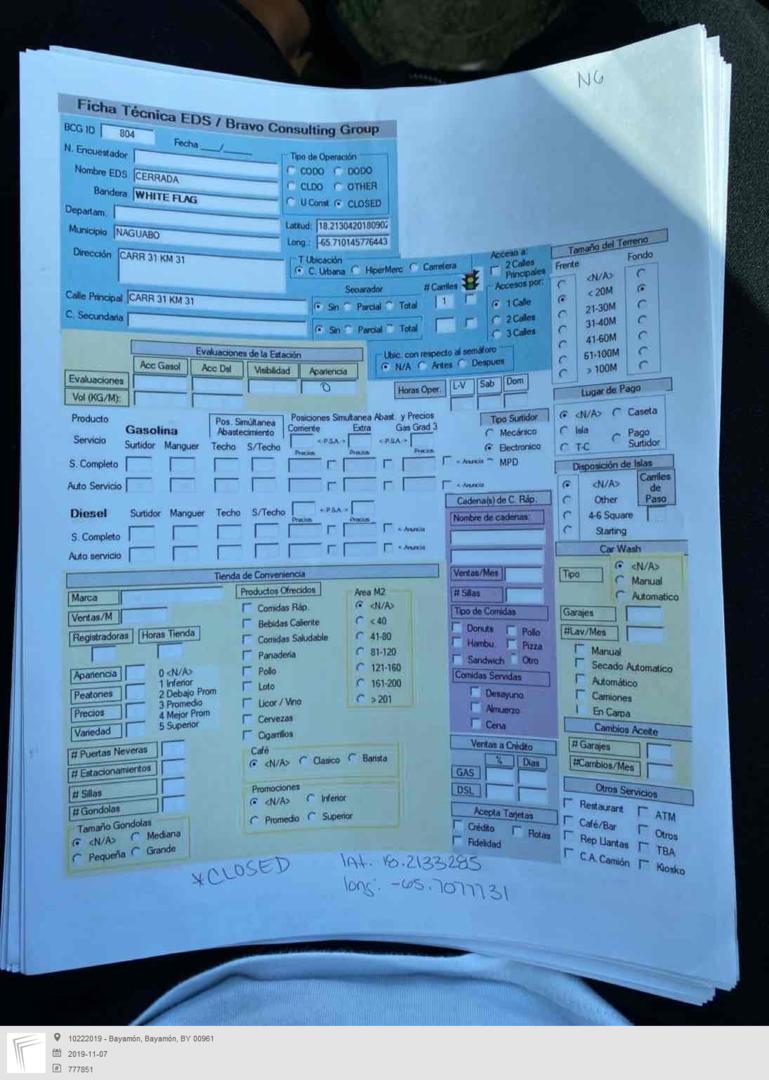 NG
Ficha Técnica EDS / Bravo Consulting Group
BCG ID 804 Fecha __/__
N. Encuestador
Nombre EDS CERRADA
Bandera WHITE FLAG
Departam.
Municipio NAGUABO
Dirección CARR 31 KM 31
Tipo de Operación
CODO DODO
CLDO OTHER
U Const CLOSED
Latitud: 18.2130420180902
Long.: -65.710145776443
T Ubicación
C. Urbana HiperMerc Carretera
Calle Principal CARR 31 KM 31
C. Secundaria
Separador # Carriles
Sin Parcial Total 1
Sin Parcial Total
Acceso a:
2 Calles
Principales
Accesos por:
1 Calle
2 Calles
3 Calles
Tamaño del Terreno
Frente Fondo
<N/A>
< 20M
21-30M
31-40M
41-60M
61-100M
> 100M
Evaluaciones de la Estación
Acc Gasol Acc Dsl Visibilidad Apariencia
Evaluaciones 0
Vol (KG/M):
Ubic. con respecto al semáforo
N/A Antes Despues
Horas Oper. L-V Sab Dom
Lugar de Pago
<N/A> Caseta
Isla Pago
T-C Surtidor
Producto Gasolina
Servicio Surtidor Manguer
Pos. Simúltanea
Abastecimiento
Techo S/Techo
Posiciones Simultanea Abast. y Precios
Corriente Extra Gas Grad 3
< -P.S.A.- > < -P.S.A.- >
Precios Precios Precios
S. Completo < - Anuncia
Auto Servicio < - Anuncia
Tipo Surtidor
Mecánico
Electronico
MPD
Disposición de Islas
<N/A>
Other
4-6 Square
Starting
Carriles
de
Paso
Diesel Surtidor Manguer Techo S/Techo < -P.S.A.- >
Precios Precios
S. Completo < - Anuncia
Auto servicio < - Anuncia
Cadena(s) de C. Ráp.
Nombre de cadenas:
Ventas/Mes
# Sillas
Tipo de Comidas
Donuts Pollo
Hambu. Pizza
Sandwich Otro
Comidas Servidas
Desayuno
Almuerzo
Cena
Car Wash
Tipo <N/A>
Manual
Automatico
Garajes
#Lav/Mes
Manual
Secado Automatico
Automático
Camiones
En Carpa
Tienda de Conveniencia
Marca
Ventas/M
Registradoras Horas Tienda
Apariencia
Peatones
Precios
Variedad
0 <N/A>
1 Inferior
2 Debajo Prom
3 Promedio
4 Mejor Prom
5 Superior
# Puertas Neveras
# Estacionamientos
# Sillas
# Gondolas
Tamaño Gondolas
<N/A> Mediana
Pequeña Grande
Productos Ofrecidos
Comidas Ráp.
Bebidas Caliente
Comidas Saludable
Panaderia
Pollo
Loto
Licor / Vino
Cervezas
Cigarrillos
Area M2
<N/A>
< 40
41-80
81-120
121-160
161-200
> 201
Café
<N/A> Clasico Barista
Promociones
<N/A> Inferior
Promedio Superior
Ventas a Crédito
% Dias
GAS
DSL
Acepta Tarjetas
Crédito Flotas
Fidelidad
Cambios Aceite
# Garajes
#Cambios/Mes
Otros Servicios
Restaurant ATM
Café/Bar Otros
Rep Llantas TBA
C.A. Camión Kiosko
*CLOSED
lat. 18.2133285
long: -65.7077731
10222019 - Bayamón, Bayamón, BY 00961
2019-11-07
777851